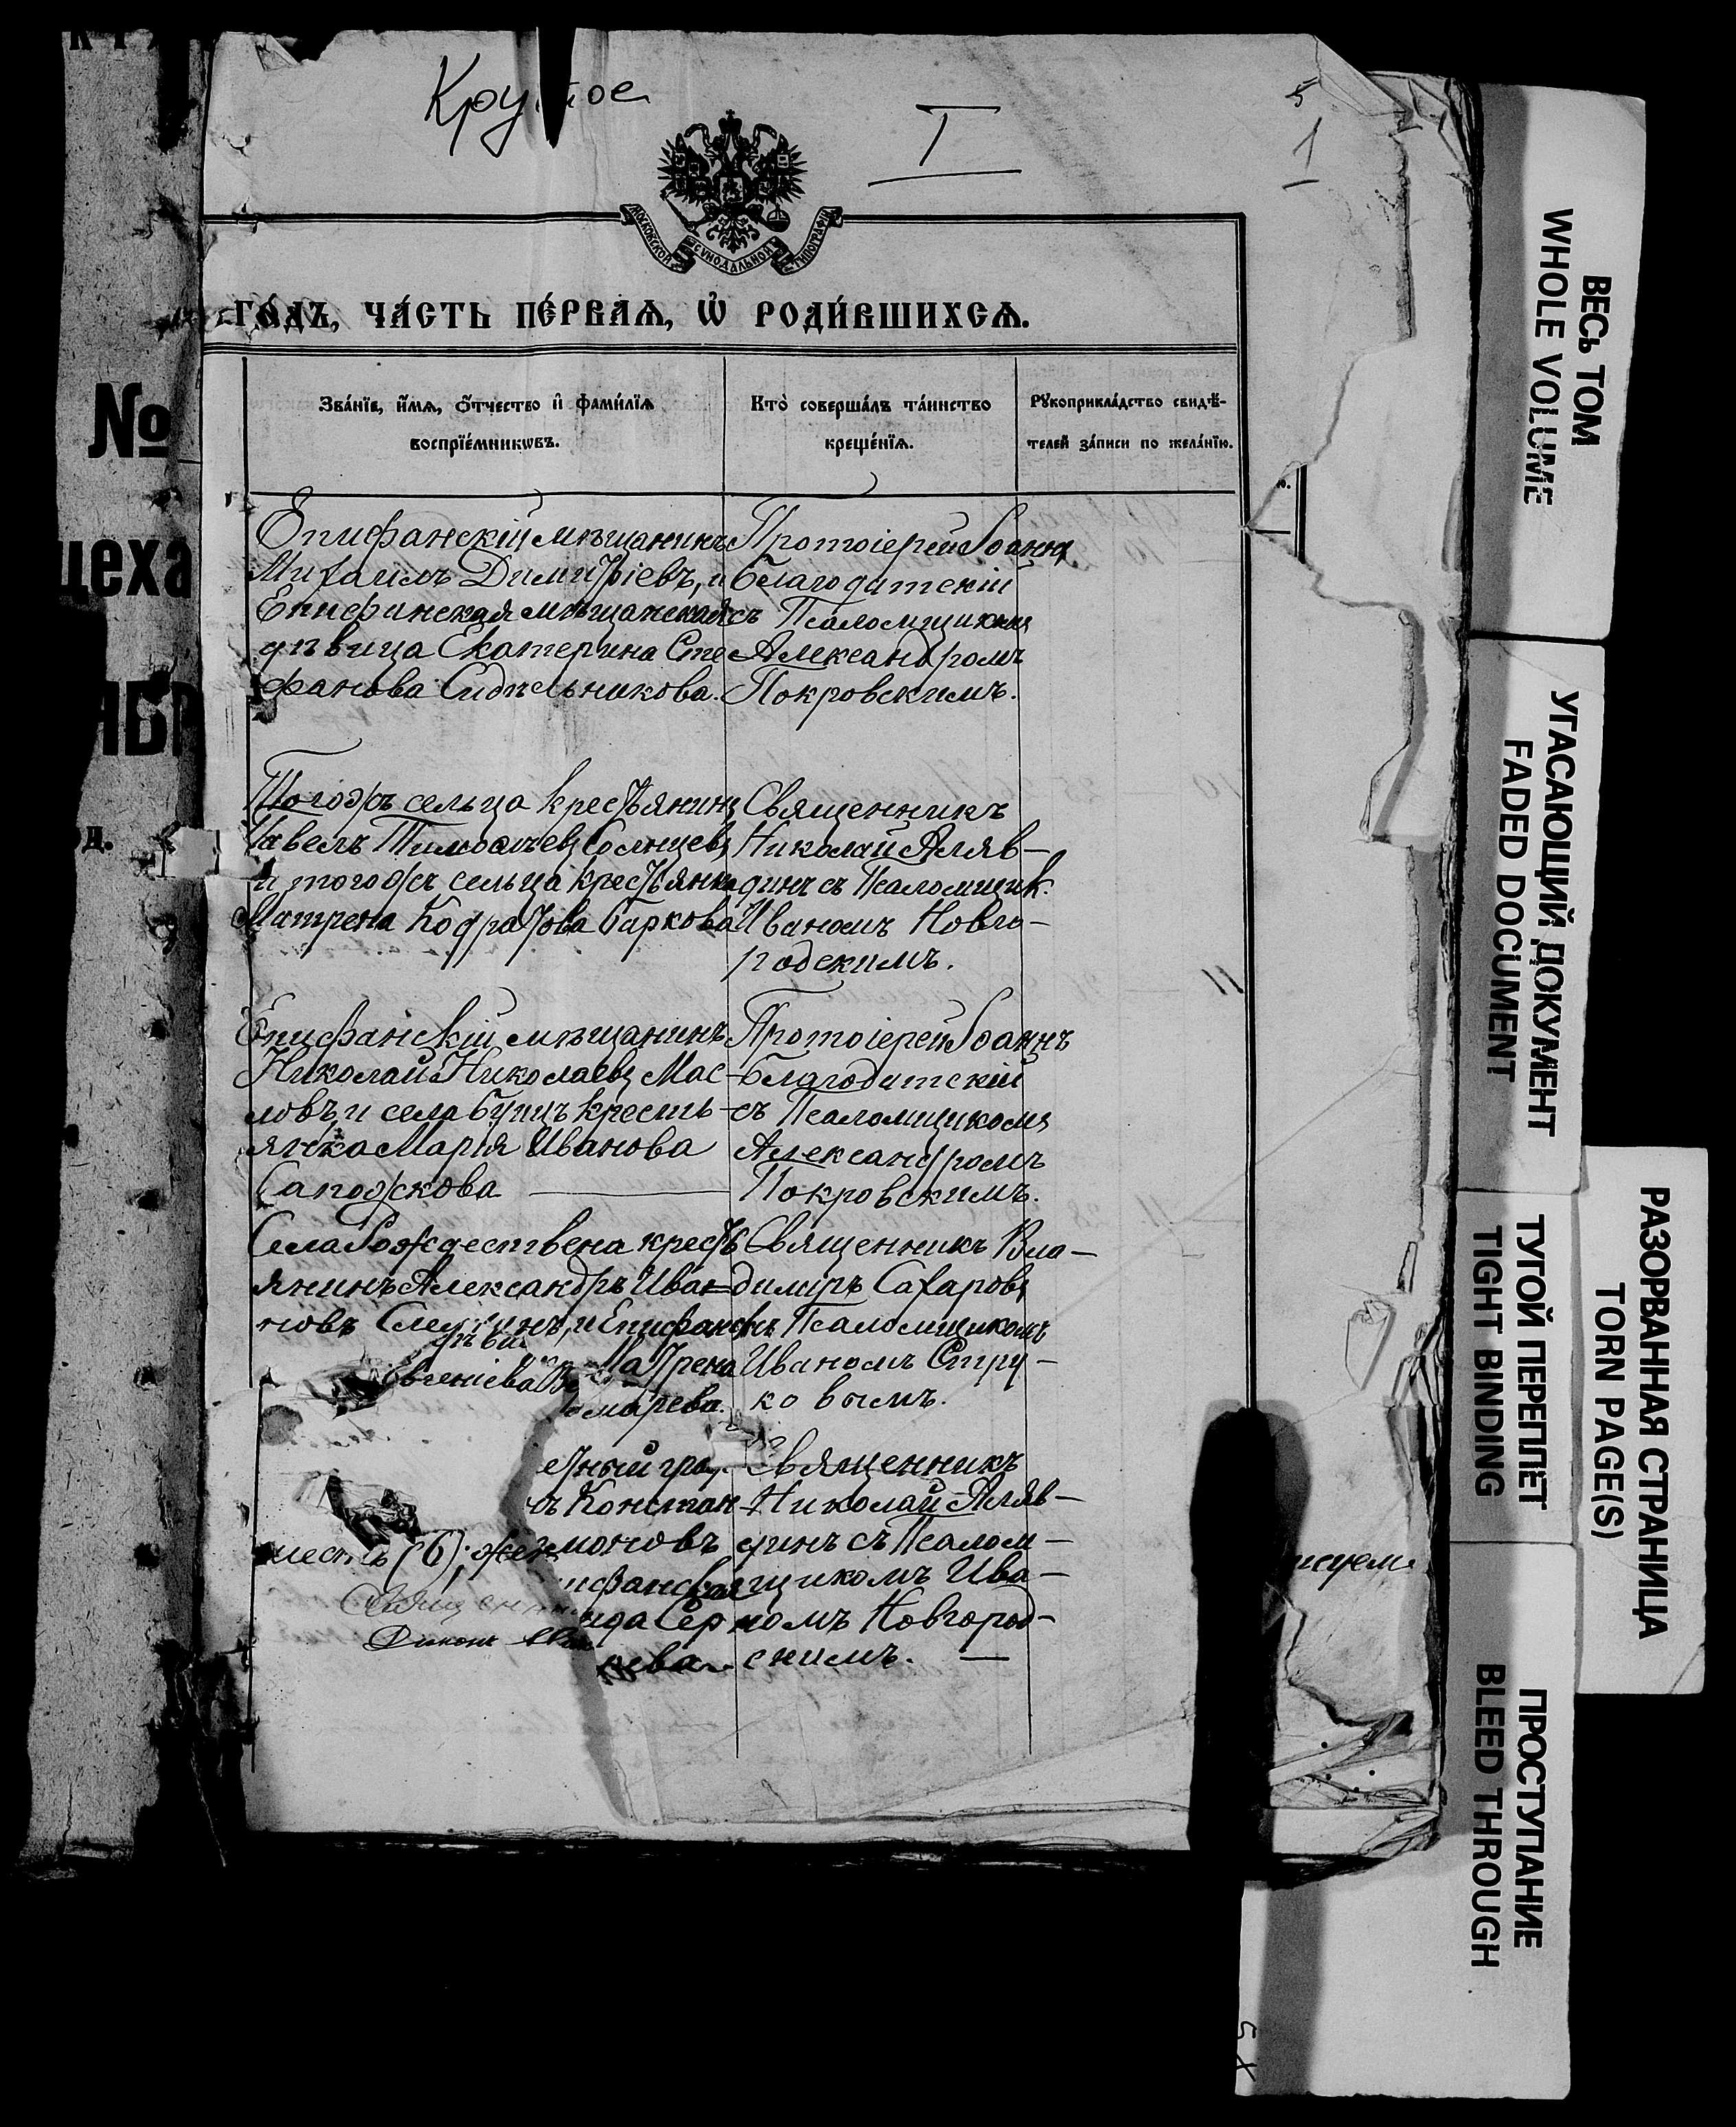 Крутое
I
5
1
МОСКОВСКОЙ СУНОДАЛЬНОЙ ТИПОГРАФІИ
ГО́ДЪ, ЧА́СТЬ ПЕ́РВАѦ, Ѡ҆ РОДИ́ВШИХСѦ.
Зва́нїе, и҆́мѧ, ѻ҆́тчество и҆ фами́лїѧ
воспрїе́мникѡвъ.
Кто̀ соверша́лъ та́инство
креще́нїѧ.
Рꙋкоприкла́дство свидѣ́-
телей за́писи по жела́нїю.
Епифанскій мѣщанинъ
Михаилъ Димитріевъ, и
Епифанская мѣщанская
дѣвица Екатерина Сте
фанова Сидѣльникова.
Протоіерей Іоаннъ
Благодатскій
съ Псаломщикомъ
Александромъ
Покровскимъ.
Тогожъ сельца крестьянинъ
Павелъ Тимоѳеевъ Солнцевъ
и тогожъ сельца крестьянка
Матрена Кодратова Баркова
Священникъ
Николай Аляв-
динъ съ Псаломщик.
Иваномъ Новго-
родскимъ.
Епифанскій мѣщанинъ
Николай Николаевъ Мас-
ловъ и села Бучиъ кресть-
янка Марія Иванова
Сапожкова
Протоіерей Іоаннъ
Благодатскій
съ Псаломщикомъ
Александромъ
Покровскимъ.
Села Рождествена кресть
янинъ Александръ Ива=
новъ и Епифанск
дѣви
Евгеніева
Матрена
омарева.
Священникъ Вла-
димиръ Сахаровъ
съ Псаломщикомъ
Иваномъ Стру-
ковымъ.
етный гра
ъ Констан-
моновъ
ифанская
ида Сер
еева
Священникъ
Николай Аляв-
динъ съ Псалом-
щикомъ Ива-
номъ Новгород-
скимъ.
шесть (6); жен
Священни
Діаконъ
исуем
№
цеха
ВЕСЬ ТОМ
WHOLE VOLUME
УГАСАЮЩИЙ ДОКУМЕНТ
FADED DOCUMENT
ТУГОЙ ПЕРЕПЛЕТ
TIGHT BINDING
РАЗОРВАННАЯ СТРАНИЦА
TORN PAGE(S)
ПРОСТУПАНИЕ
BLEED THROUGH